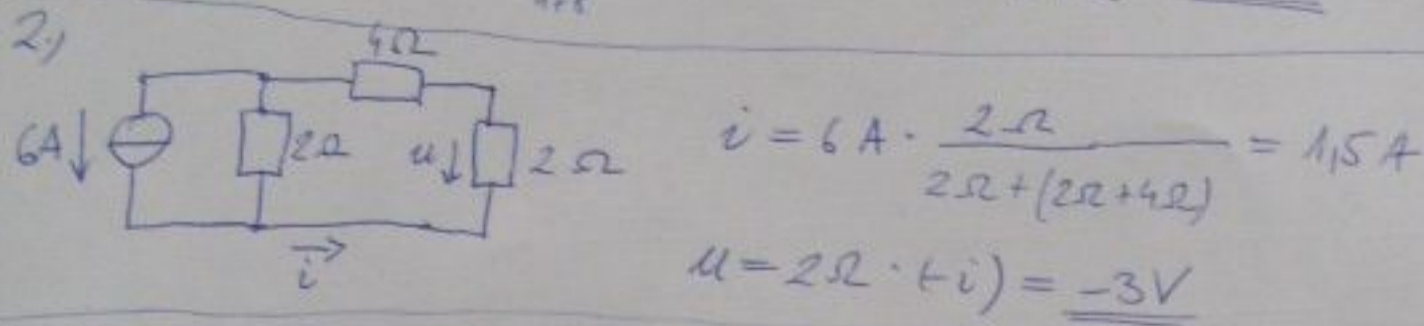 2.)
4Ω
6A ↓ 2Ω u ↓ 2Ω
i
i = 6 A · 2Ω / (2Ω + (2Ω + 4Ω)) = 1,5 A
u = 2Ω · (-i) = -3V